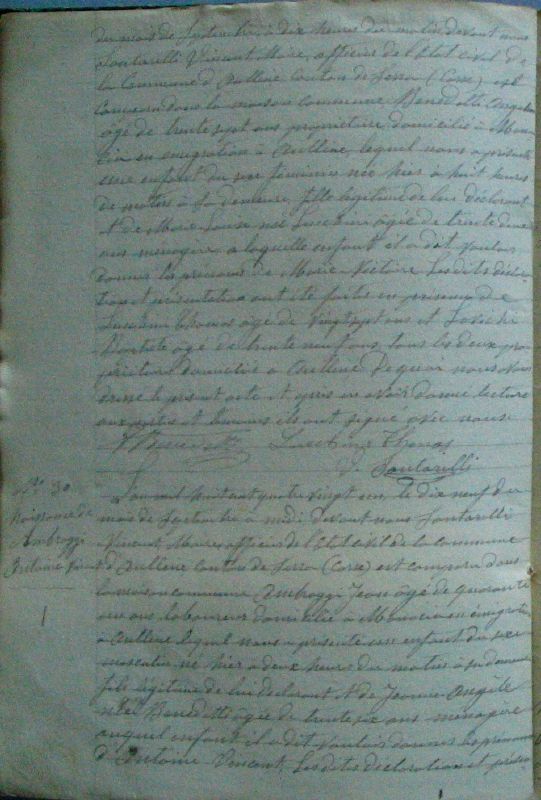 du mois de Septembre à dix heures du matin devant nous
Santarelli Vincent Maire, officier de l'Etat civil de
la Commune d'Aullène canton de Serra (Corse) est
comparu dans la maison commune Benedetti
âgé de trente sept ans propriétaire, domicilié à
en emigration à Aullène, lequel nous a présenté
une enfant du sexe féminin née hier à huit heures
du matin à sa demeure, fille légitime de lui déclarant
et de Marie Louise née Lucchini âgée de trente
ans ménagère, a laquelle enfant il a dit vouloir
donner les prénoms de Marie Victoire. Les dites déclara
tion et présentation ont été faites en présence de
Lucchini Thomas âgé de vingt sept ans et
âgé de trente neuf ans, tous les deux pro
priétaires domiciliés à Aullène De quoi nous avons
dressé le présent acte et après en avoir donné lecture
aux parties et témoins ils ont signé avec nous
Benedetti Lucchini Thomas
Santarelli
N° 30
Naissance de
Ambroggi
Antoine Vincent
1
L'an mil huit cent quatre vingt un, le dix neuf du
mois de Septembre à midi devant nous Santarelli
Vincent Maire, officier de l'Etat civil de la commune
d'Aullène canton de Serra (Corse) est comparu dans
la maison commune Ambroggi Jean âgé de quarante
ans laboureur domicilié à en émigration
à Aullène lequel nous a présenté un enfant du sexe
masculin né hier à deux heures du matin à sa demeure
fils légitime de lui déclarant et de Jeanne Angèle
née Benedetti âgée de trente six ans ménagère
auquel enfant il a dit vouloir donner les prénoms
d'Antoine Vincent. Les dites déclaration et présen